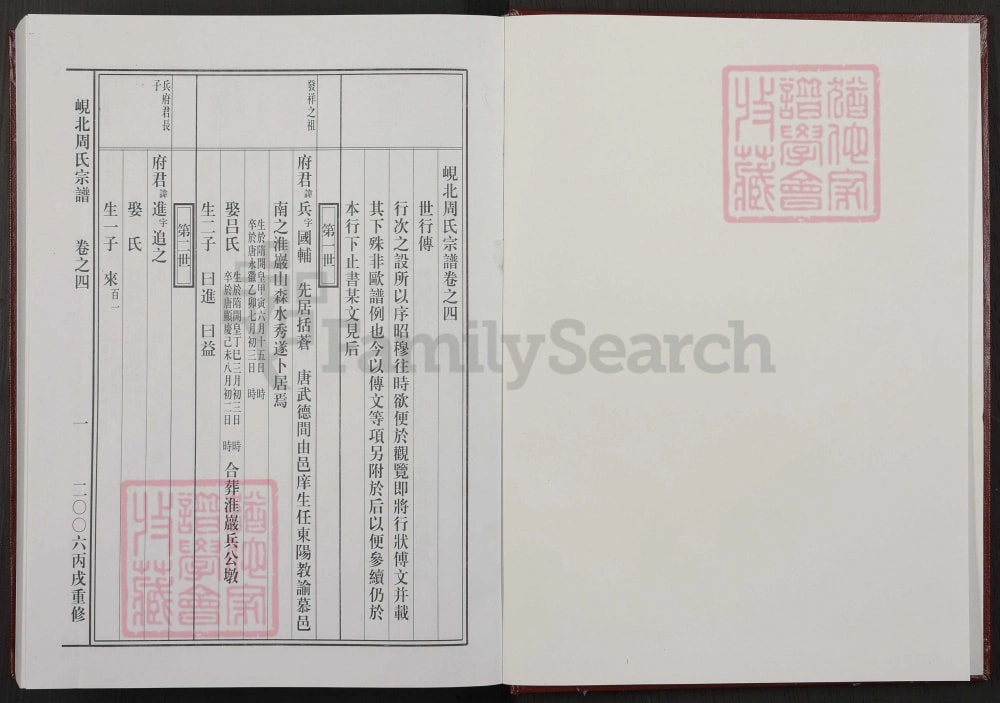 峴北周氏宗譜卷之四
世行傳
行次之設所以序昭穆往時欲便於觀覽即將行狀傳文并載
其下殊非歐譜例也今以傳文等項另附於后以便參續仍於
本行下止書某文見后
第一世
發祥之祖
府君諱兵字國輔 先居括蒼 唐武德間由邑庠生任東陽教諭慕邑
南之淮巖山森水秀遂卜居焉
生於隋開皇甲寅六月十五日 時
卒於唐永徽乙卯七月初三日 時
娶呂氏 生於隋開皇丁巳三月初三日 時
卒於唐顯慶己未八月初二日 時
合葬淮巖兵公墩
生二子 曰進 曰益
第二世
兵府君長子
府君諱進字追之
娶 氏
生一子 來百一
峴北周氏宗譜 卷之四 一 二〇〇六丙戌重修
猶他家
譜學會
收藏
猶他家
譜學會
收藏
FamilySearch